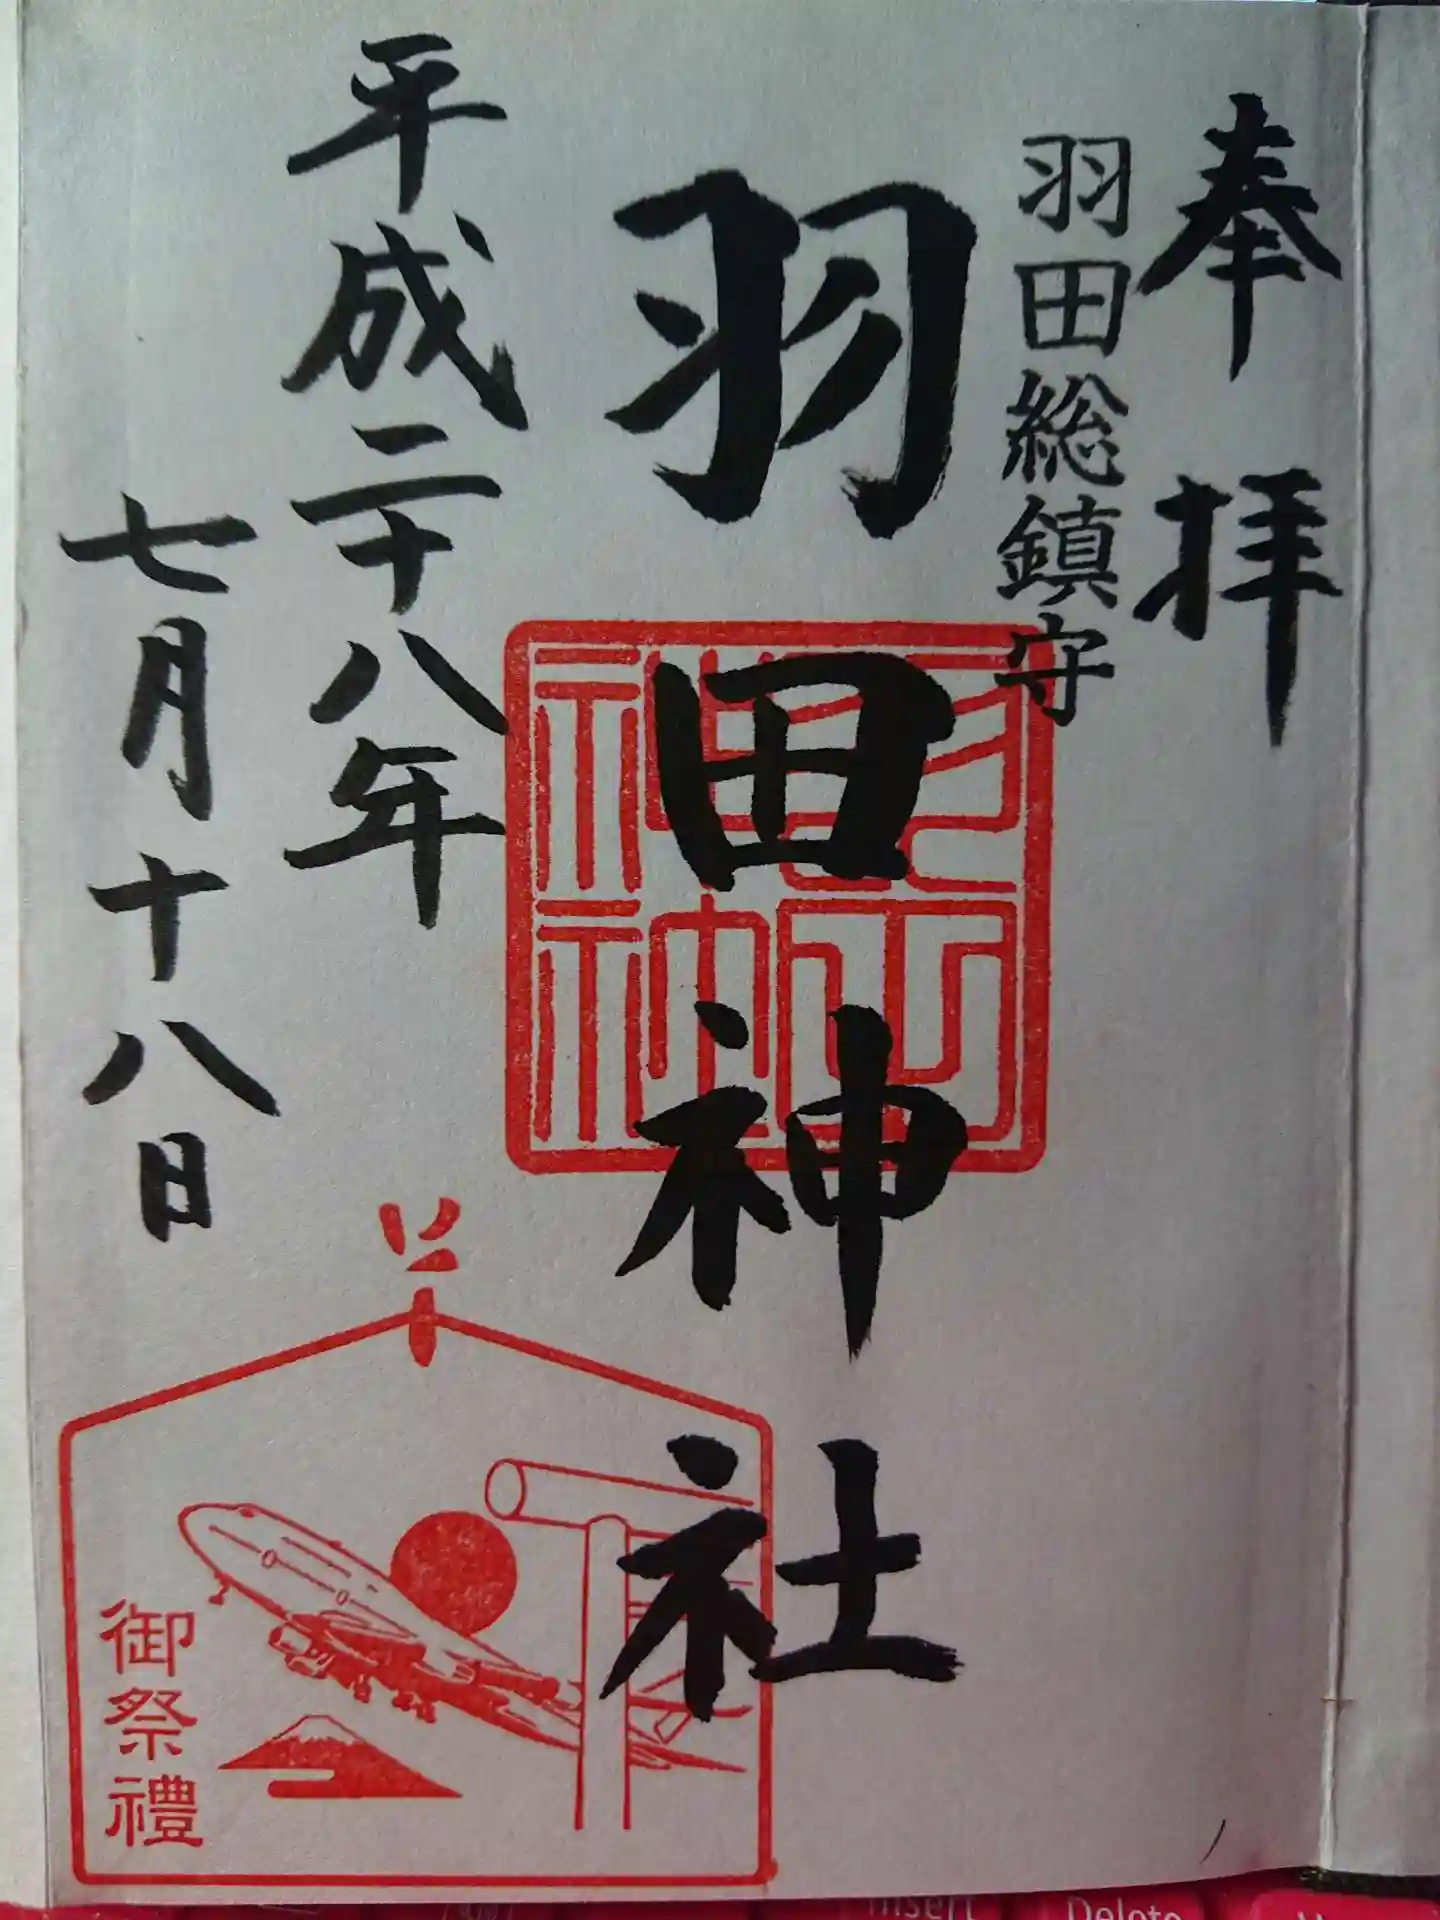 奉拝
羽田総鎮守
羽田神社
平成二十八年
七月十八日
羽田神社
御祭禮
Insert
Delete